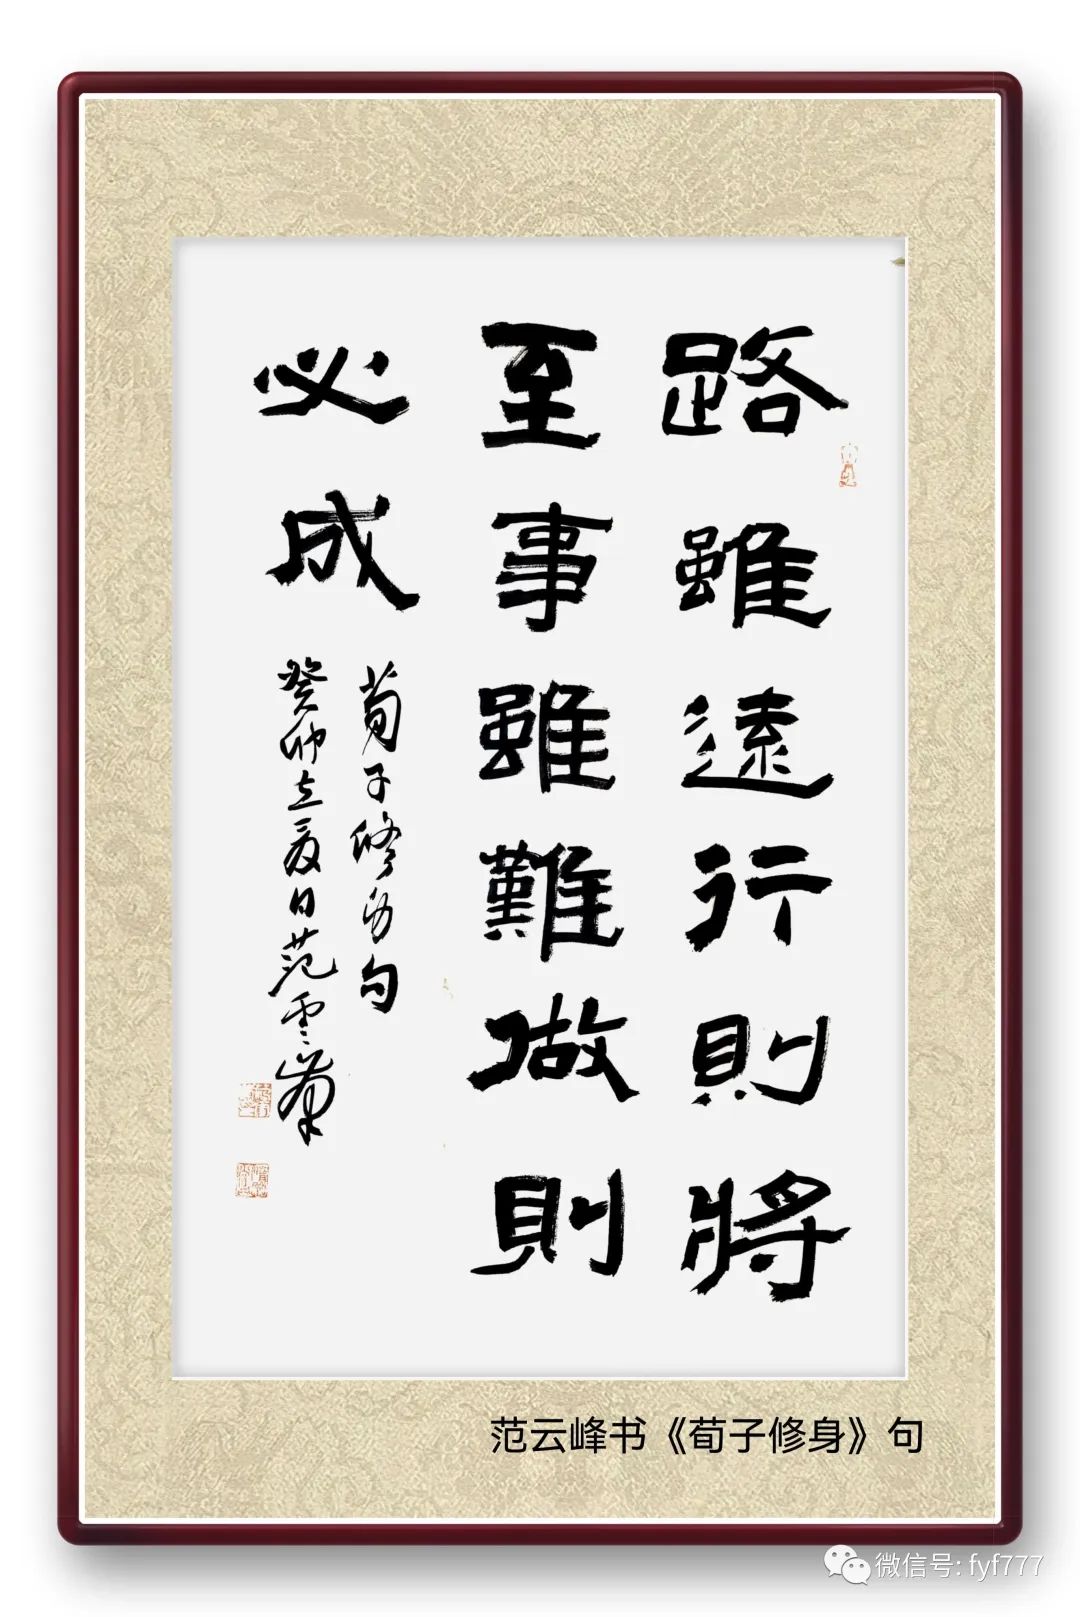 路雖遠行則將
至事雖難做則
必成
荀子修身句
癸卯立夏日范雲峯
范云峰书《荀子修身》句
微信号: fyf777